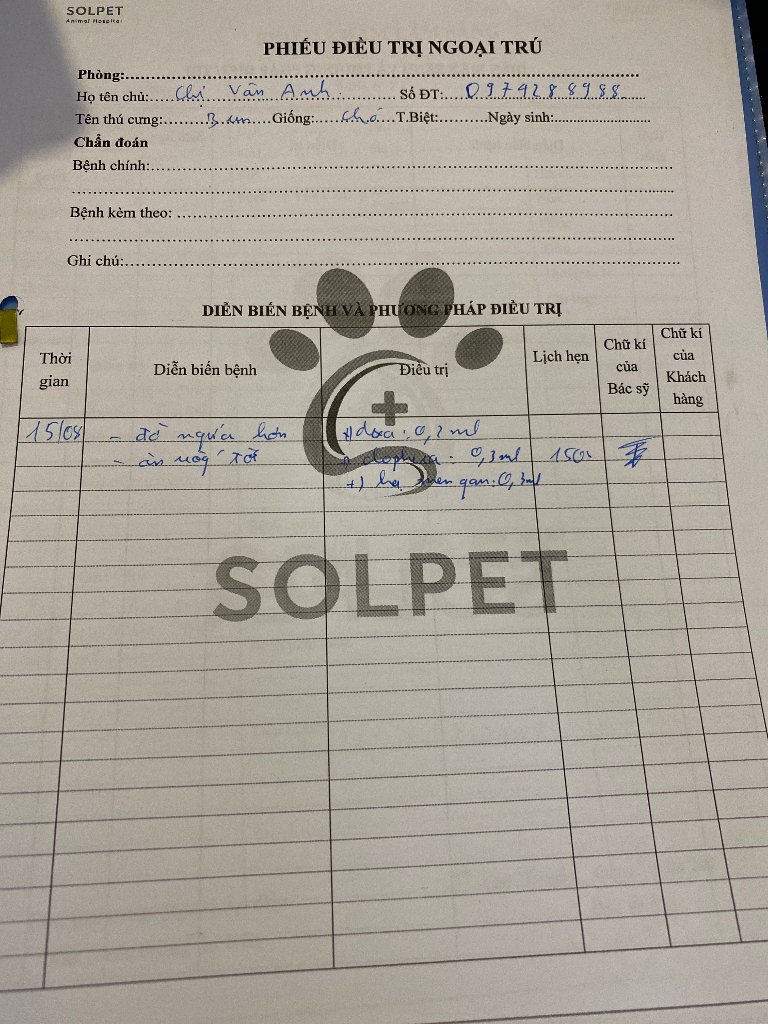 SOLPET
Animal Hospital
PHIẾU ĐIỀU TRỊ NGOẠI TRÚ
Phòng:
Họ tên chủ: Chị Vân Anh Số ĐT: 0974288988
Tên thú cưng: Bim Giống: chó T.Biệt: Ngày sinh:
Chẩn đoán
Bệnh chính:
Bệnh kèm theo:
Ghi chú:
DIỄN BIẾN BỆNH VÀ PHƯƠNG PHÁP ĐIỀU TRỊ
Thời gian Diễn biến bệnh Điều trị Lịch hẹn Chữ kí của Bác sỹ Chữ kí của Khách hàng
15/08 - đỡ ngứa hơn +) dexa: 0,2ml
- ăn uống tốt 0,3ml
+) hạ men gan: 0,3ml
SOLPET